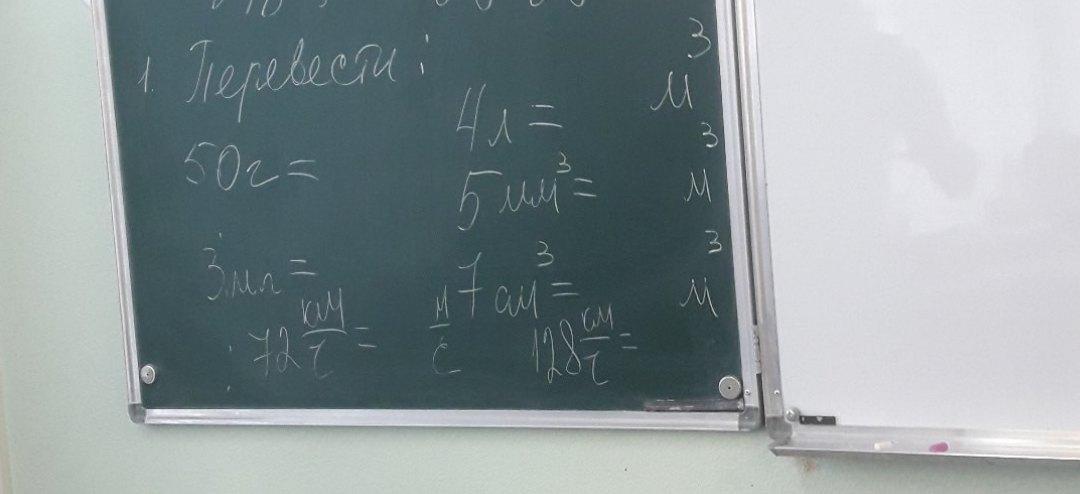 1. Перевести:
4л = м³
50г =
5 мм³ = м³
3 мл =
7 см³ = м³
72 км/ч = м/с 128 км/ч =